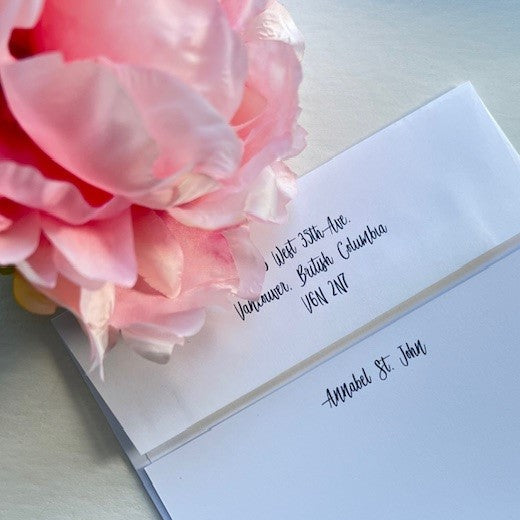 West 35th Ave.
Vancouver, British Columbia
V6N 2N7
Annabel St. John